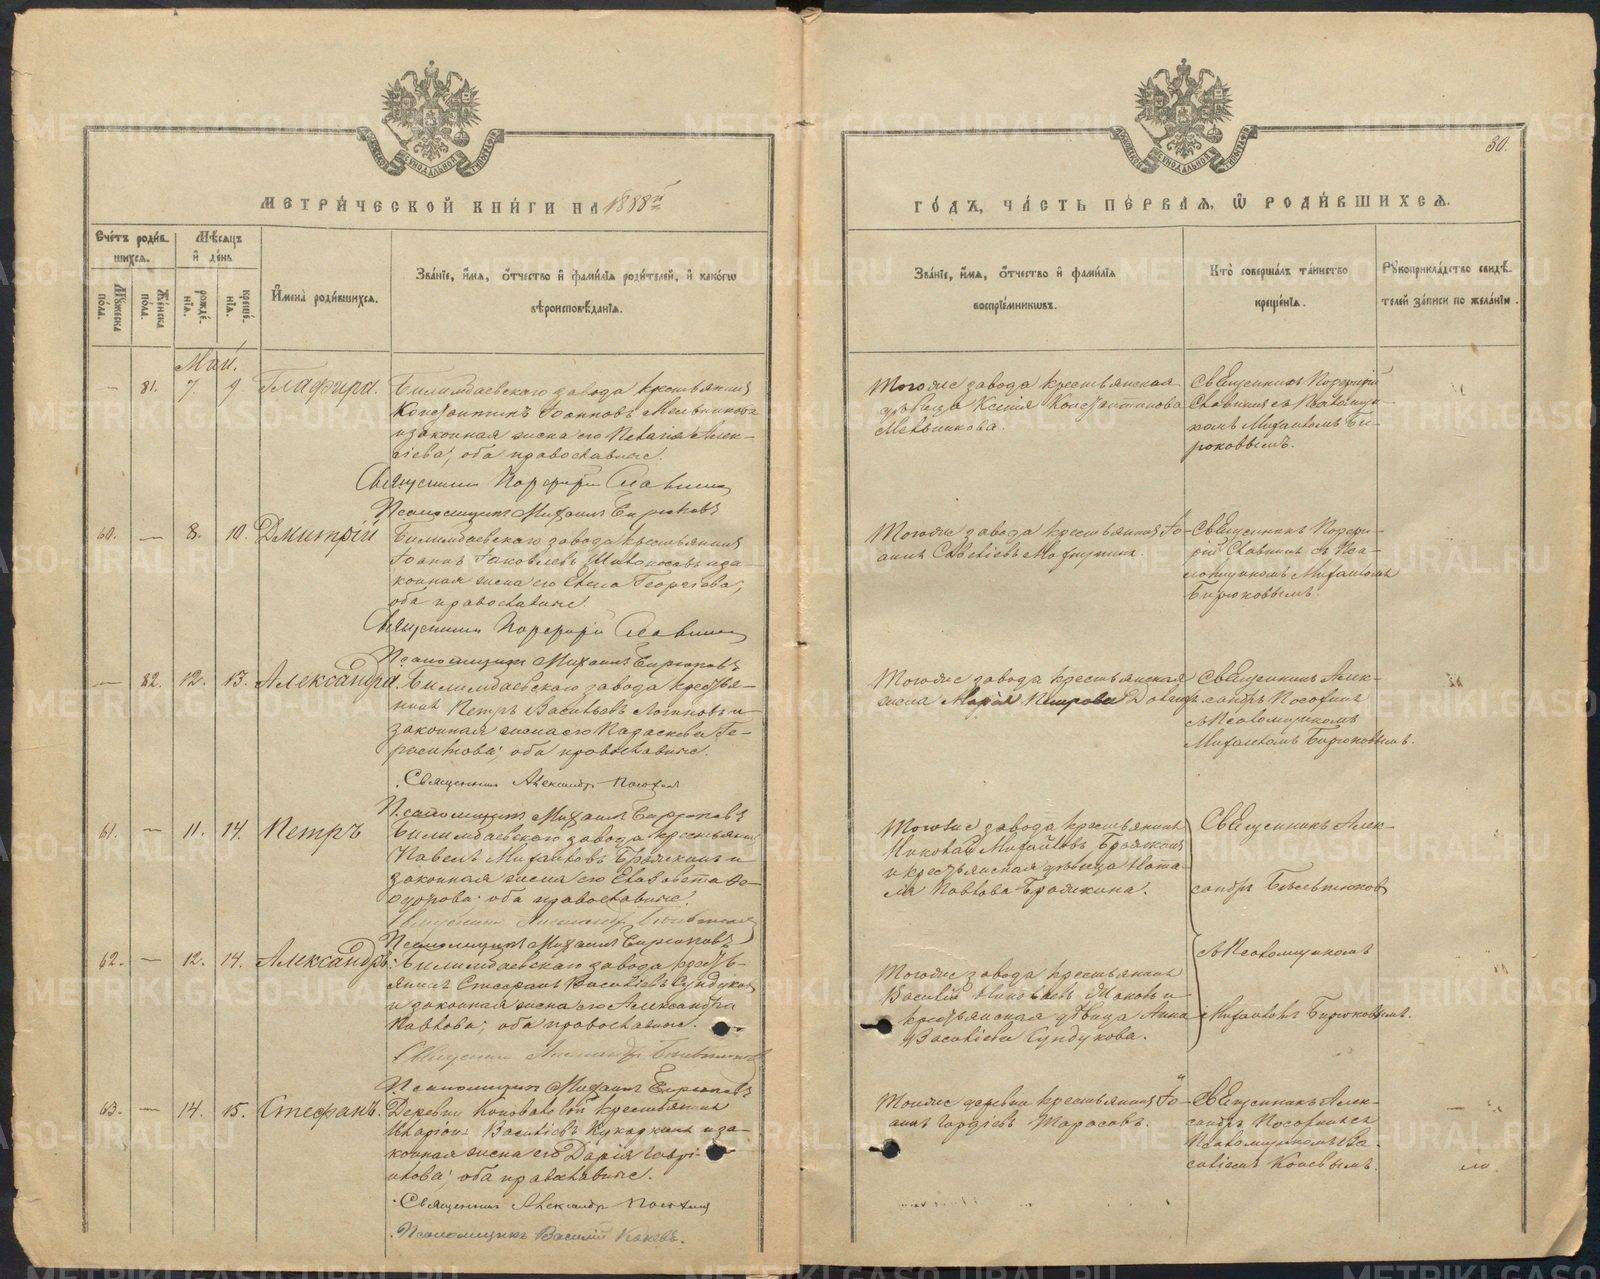 МЕТРИ́ЧЕСКОЙ КНИ́ГИ НА 1888й
ГО́ДЪ, ЧА́СТЬ ПЕ́РВАЯ, Ѿ РОДИ́ВШИХСЯ.
30.
Сче́тъ роди́вшихся.
Мѣ́сяцъ и҆ де́нь
Мꙋ́жеска по́ла.
Же́нска по́ла.
рожде́нїѧ.
креще́нїѧ.
И҆мена̀ роди́вшихся.
Зва́нїе, и҆́мя, ѻ҆́тчество и҆ фами́лїѧ роди́телей, и҆ како́гѡ
вѣроисповѣ́данїѧ.
Зва́нїе, и҆́мя, ѻ҆́тчество и҆ фами́лїѧ
воспрїе́мникѡвъ.
Кто̀ соверша́лъ та́инство
креще́нїѧ.
Рꙋкоприкла́дство свидѣ́телей за́писи по жела́нїю.
Май.
— 81. 7 9 Глафира.
Билимбаевскаго завода крестьянинъ
Константинъ Іоанновъ Мельниковъ
и законная жена его Пелагія Алек-
сіева; оба православные.
Священникъ Порфирій Славнинъ
Псаломщикъ Михаилъ Бирюковъ
Тогоже завода крестьянская
дѣвица Ксенія Константинова
Мельникова.
Священникъ Порфирій
Славнинъ съ Псаломщи-
комъ Михаиломъ Би-
рюковымъ.
60. — 8. 10. Дмитрій
Билимбаевскаго завода крестьянинъ
Іоаннъ Іаковлевъ Шивоносовъ и за-
конная жена его Елена Георгіева;
оба православные.
Священникъ Порфирій Славнинъ
Псаломщикъ Михаилъ Бирюковъ
Тогоже завода крестьянинъ Іо-
аннъ
Священникъ Порфи-
рій Славнинъ съ Пса-
ломщикомъ Михаиломъ
Бирюковымъ.
— 82. 12. 13. Александра.
Билимбаевскаго завода крестья-
нинъ Петръ Васильевъ Логиновъ и
законная жена его Параскева Ге-
расимова; оба православные.
Священникъ Александръ
Псаломщикъ Михаилъ Бирюковъ
Тогоже завода крестьянская
жена Марія Петрова
Священникъ Алек-
сандръ
съ Псаломщикомъ
Михаиломъ Бирюковымъ.
61. — 11. 14. Петръ
Билимбаевскаго завода крестьянинъ
Павелъ Михайловъ Брямкинъ и
законная жена его Елизавета Ѳе-
одорова; оба православные.
Священникъ Александръ
Псаломщикъ Михаилъ Бирюковъ
Тогоже завода крестьянинъ
Николай Михайловъ
и крестьянская дѣвица Ната-
лія Павлова
Священникъ Алек-
сандръ
62. — 12. 14. Александръ.
Билимбаевскаго завода кресть-
янинъ Стефанъ Васильевъ Сундуковъ
и законная жена его Александра
Павлова; оба православные.
Священникъ Александръ
Псаломщикъ Михаилъ Бирюковъ
Тогоже завода крестьянинъ
Василій
крестьянская дѣвица Анна
Васильева Сундукова.
съ Псаломщикомъ
Михаиломъ Бирюковымъ.
63. — 14. 15. Стефанъ.
Деревни Коноваловой крестьянинъ
Иларіонъ Васильевъ Кукаркинъ и за-
конная жена его Дарія Гаврі-
илова; оба православные.
Священникъ Александръ
Псаломщикъ Василій
Тоюже деревни крестьянинъ Іо-
аннъ Гордіевъ Тарасовъ.
Священникъ Алек-
сандръ
Псаломщикомъ Ва-
силіемъ